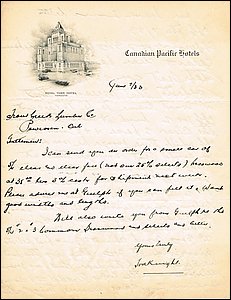 Canadian Pacific Hotels
ROYAL YORK HOTEL
June 7/30
Lumber Co
Ont
Gentlemen:
I can send you an order for a small car of
clear (not our 25% selects) Basswood
at 35 less 2% cash for shipment next week.
Please advise me at Guelph if you can fill it. Want
good widths and lengths.
Will also write you from Guelph re the
No 2 & 3 Common Basswood and selects and better.
Yours truly